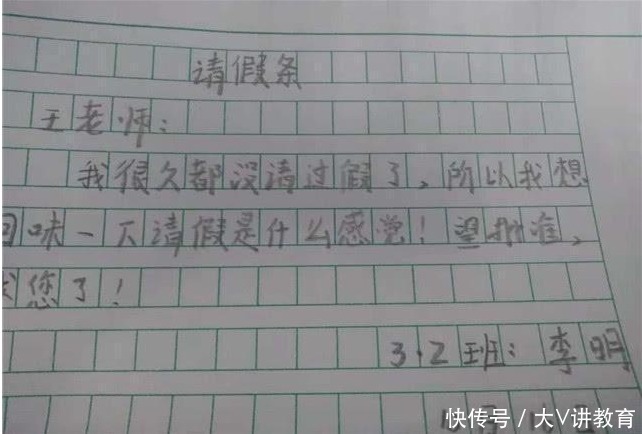 请假条
王老师:
我很久都没请过假了,所以我想
回味一下请假是什么感觉!望批准,
您了!
3.2班:李明
快传号/大V讲教育